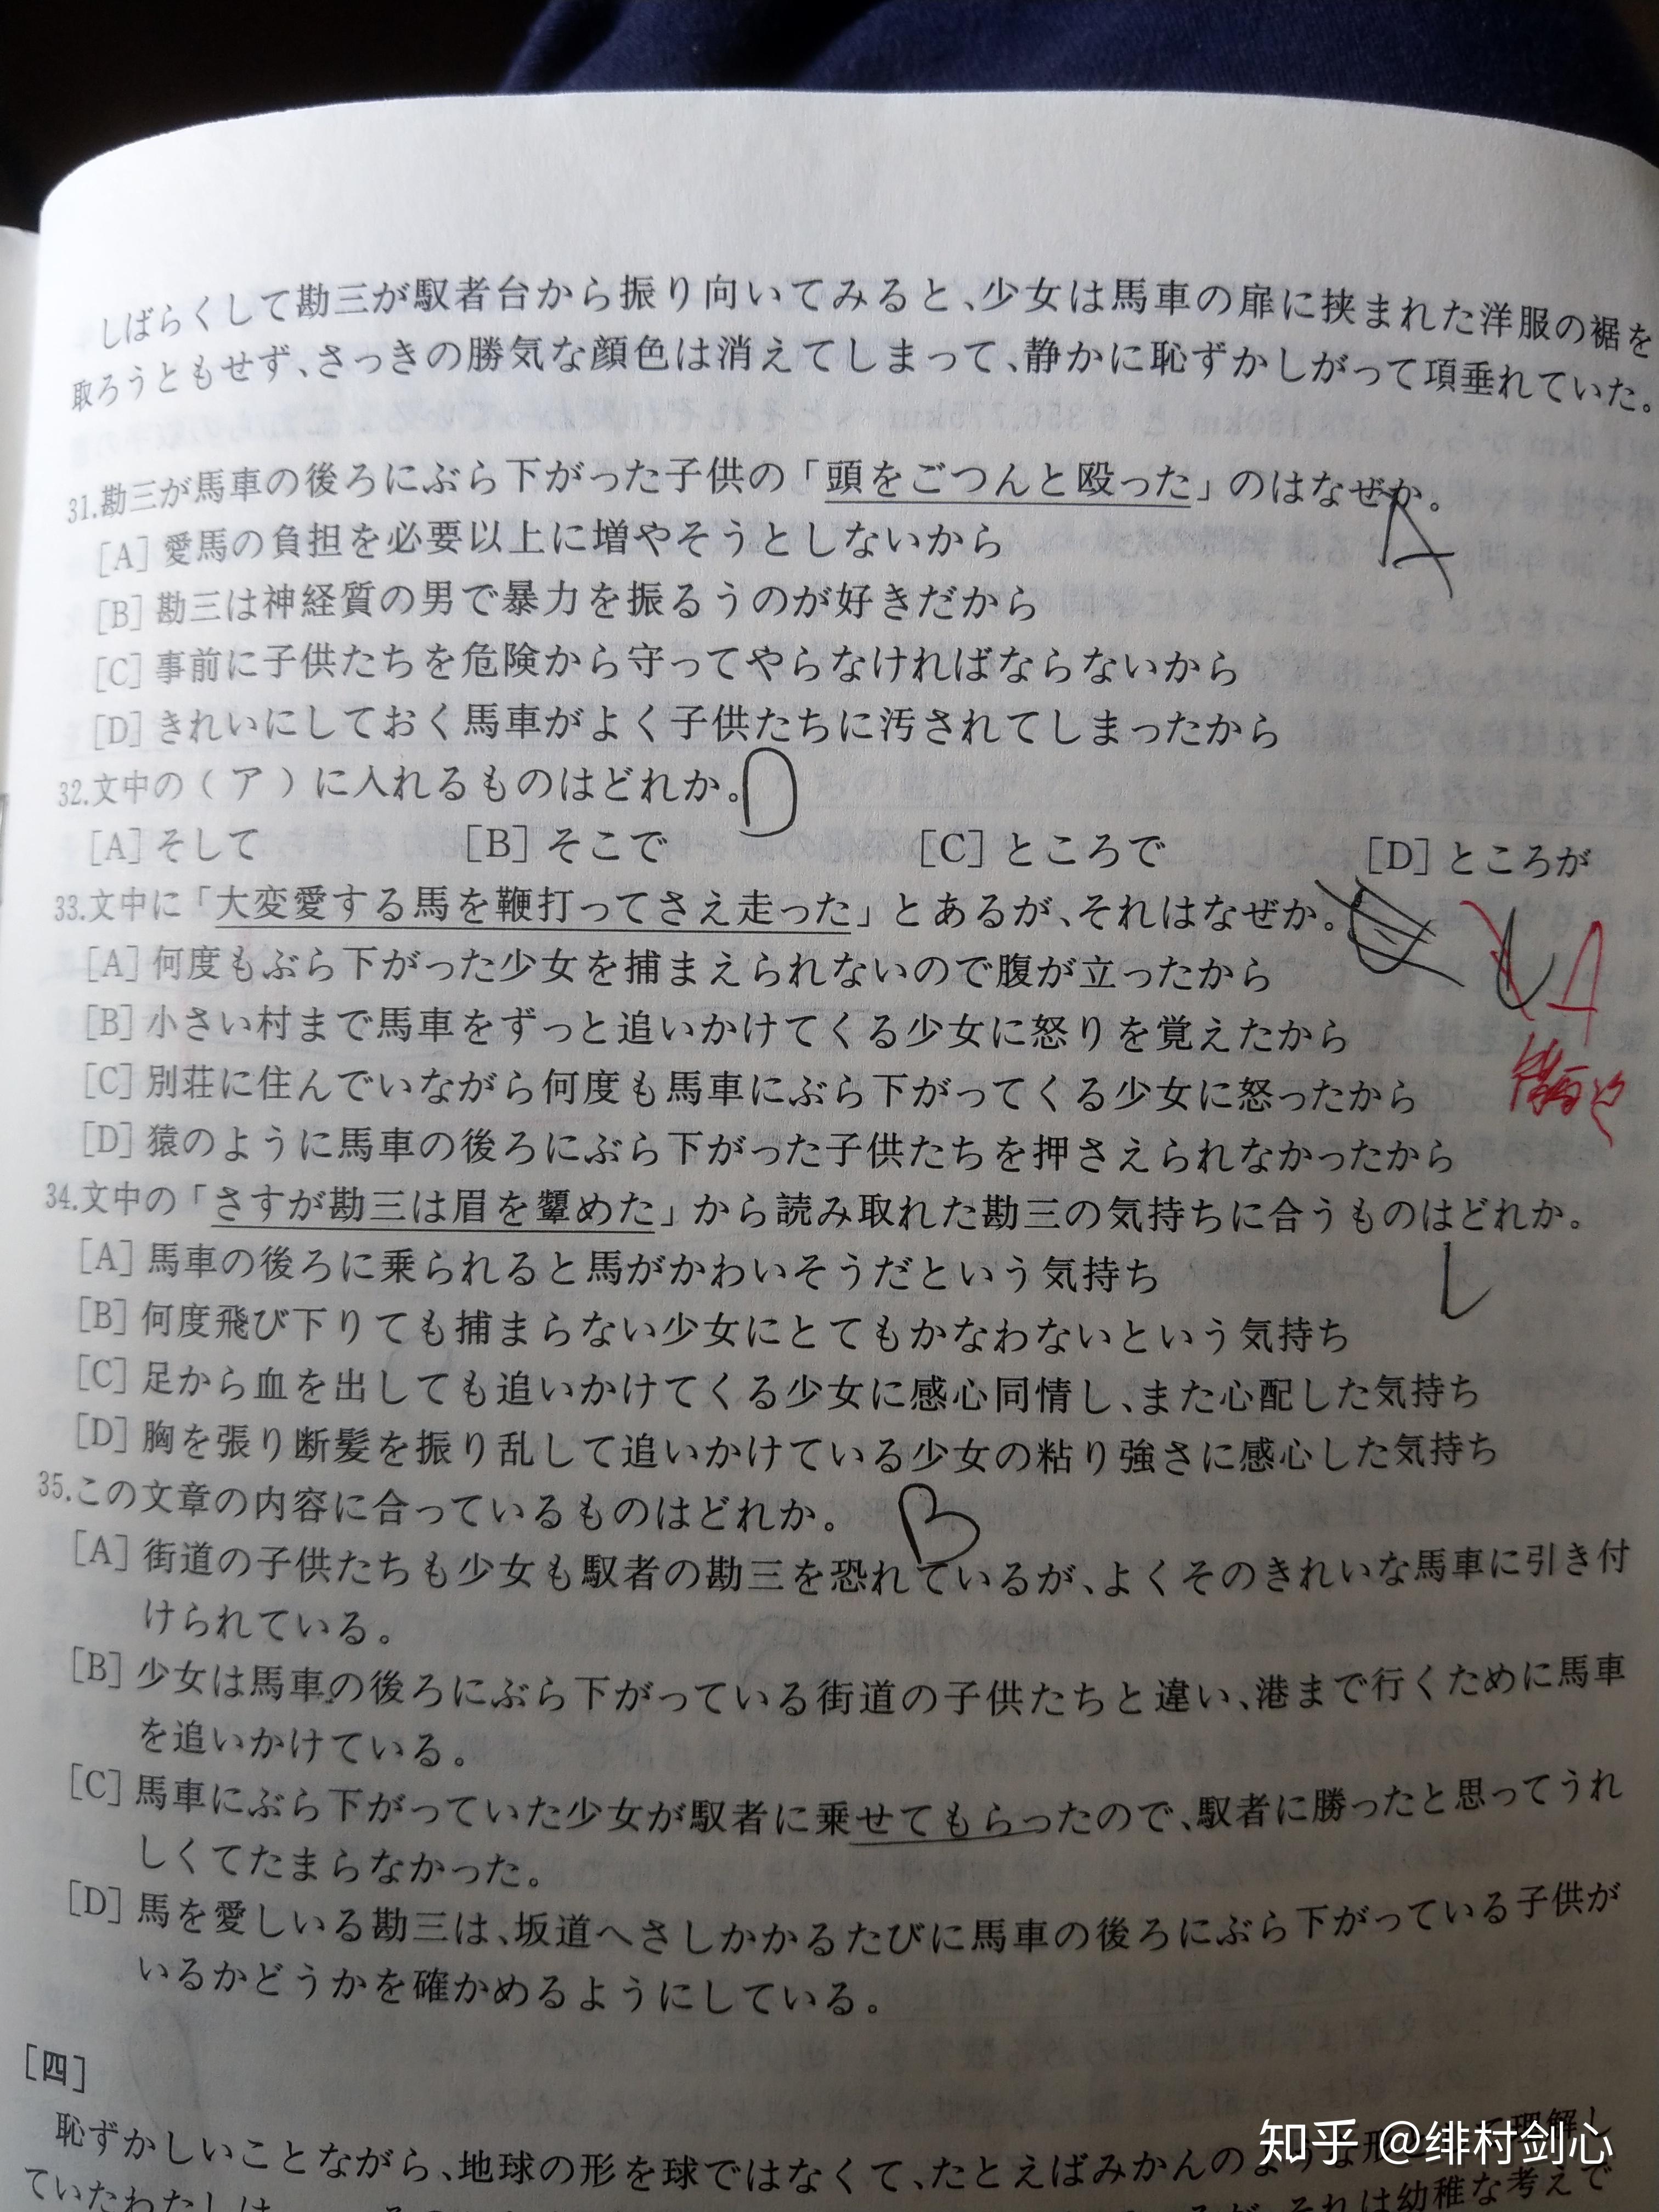 しばらくして勘三が馭者台から振り向いてみると、少女は馬車の扉に挟まれた洋服の裾を
取ろうともせず、さっきの勝気な顔色は消えてしまって、静かに恥ずかしがって項垂れていた。
31.勘三が馬車の後ろにぶら下がった子供の「頭をごつんと殴った」のはなぜか。
A
[A]愛馬の負担を必要以上に増やそうとしないから
[B]勘三は神経質の男で暴力を振るうのが好きだから
[C]事前に子供たちを危険から守ってやらなければならないから
[D]きれいにしておく馬車がよく子供たちに汚されてしまったから
32.文中の(ア)に入れるものはどれか。D
[A]そして [B]そこで [C]ところで [D]ところが
33.文中に「大変愛する馬を鞭打ってさえ走った」とあるが、それはなぜか。
[A]何度もぶら下がった少女を捕まえられないので腹が立ったから
[B]小さい村まで馬車をずっと追いかけてくる少女に怒りを覚えたから
[C]別荘に住んでいながら何度も馬車にぶら下がってくる少女に怒ったから
[D]猿のように馬車の後ろにぶら下がった子供たちを押さえられなかったから
34.文中の「さすが勘三は眉を顰めた」から読み取れた勘三の気持ちに合うものはどれか。
[A]馬車の後ろに乗られると馬がかわいそうだという気持ち
[B]何度飛び下りても捕まらない少女にとてもかなわないという気持ち
[C]足から血を出しても追いかけてくる少女に感心同情し、また心配した気持ち
[D]胸を張り断髪を振り乱して追いかけている少女の粘り強さに感心した気持ち
35.この文章の内容に合っているものはどれか。B
[A]街道の子供たちも少女も馭者の勘三を恐れているが、よくそのきれいな馬車に引き付
けられている。
[B]少女は馬車の後ろにぶら下がっている街道の子供たちと違い、港まで行くために馬車
を追いかけている。
[C]馬車にぶら下がっていた少女が馭者に乗せてもらったので、馭者に勝ったと思ってうれ
しくてたまらなかった。
[D]馬を愛しいる勘三は、坂道へさしかかるたびに馬車の後ろにぶら下がっている子供が
いるかどうかを確かめるようにしている。
[四]
恥ずかしいことながら、地球の形を球ではなくて、たとえばみかんのような形 理解し
ていたわたしは が、それは幼稚な考えで
知乎 @绯村剑心